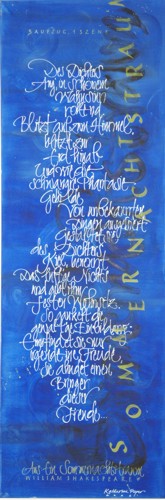 AUFZUG 1. SZENE
Des Dichters
Aug, in schönem
Wahnsinn
rollend
Blitzt auf zum Himmel,
blitzt zur
Erd' hinab
Und wie die
schwangre Phantasie
Gebilde
Von unbekannten
Dingen ausgebiert
Gestaltet sie
des Dichters
Kiel, benennt
Das luft'ge Nichts
und gibt ihm
festen Wohnsitz.
So gaukelt die
gewalt'ge Einbildung
Empfindet sie nur
irgend eine Freude,
Sie ahnet einen
Bringer
dieser
Freude...
Aus: Ein Sommernachtstraum
WILLIAM SHAKESPEARE
SOMMERNACHTSTRAUM